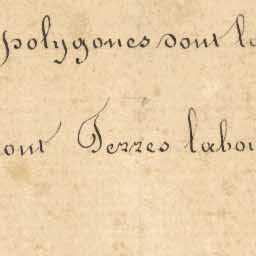 polygones dont la
ont Terres labou